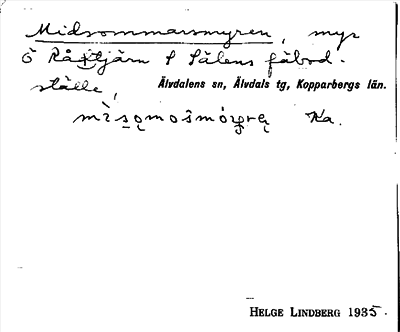 Midsommarsmyren, myr
Ö Råtjärn S Sälens fäbod-
ställe, Älvdalens sn, Älvdals tg, Kopparbergs län.
Ka.
HELGE LINDBERG 1935.